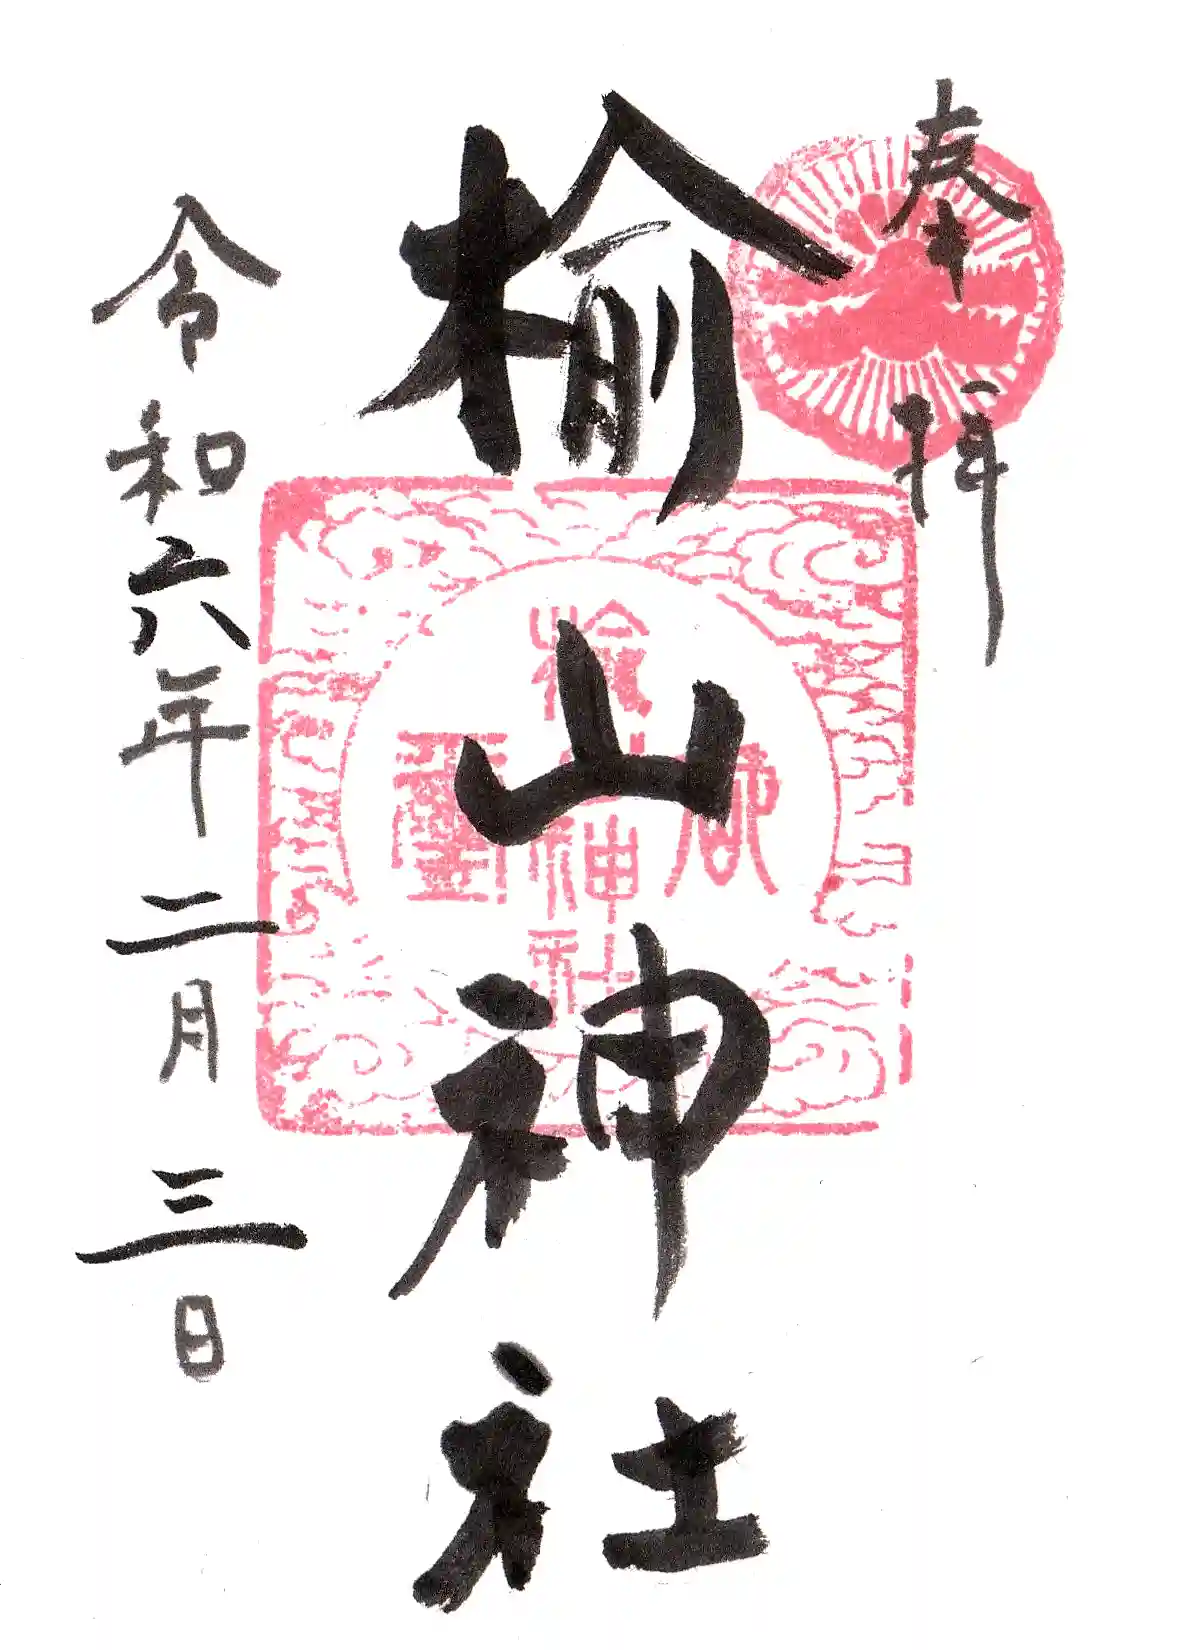 奉拝
楡山神社
令和六年二月三日
楡山神社
御璽